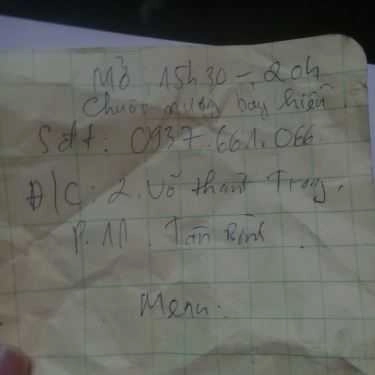 Mở 15h30 - 20h
Chuối nướng bay hiền
Sđt: 0937.661.066
Đ/C: 2. Võ thành Trang,
P. 11. Tân Bình.
Menu: